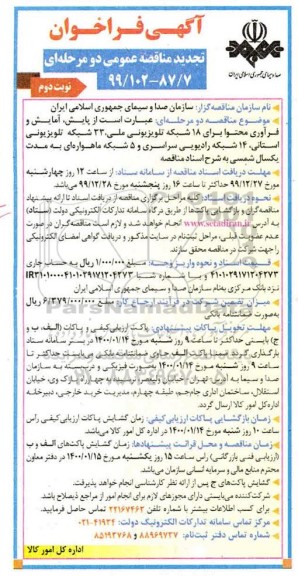 آگهی فراخوان
تجدید مناقصه عمومی دو مرحله‌ای
۹۹/۱۰۲-۸۷/۷
نوبت دوم
صدا و سیمای جمهوری اسلامی ایران
نام سازمان مناقصه‌گزار: سازمان صدا و سیمای جمهوری اسلامی ایران
موضوع مناقصه دو مرحله‌ای: عبارت است از پایش، آمایش و
فرآوری محتوا برای ۱۸ شبکه تلویزیونی ملی، ۳۳ شبکه تلویزیونی
استانی، ۱۴ شبکه رادیویی سراسری و ۵ شبکه ماهواره‌ای به مدت
یکسال شمسی به شرح اسناد مناقصه
مهلت دریافت اسناد مناقصه از سامانه ستاد: از ساعت ۱۲ روز چهارشنبه
مورخ ۹۹/۱۲/۲۷ حداکثر تا ساعت ۱۶ روز پنجشنبه مورخ ۹۹/۱۲/۲۸ می‌باشد.
نحوه دریافت اسناد: کلیه مراحل برگزاری مناقصه از دریافت اسناد تا ارائه پیشنهاد
مناقصه‌گران و بازگشایی پاکت‌ها از طریق درگاه سامانه تدارکات الکترونیکی دولت (ستاد)
به آدرس www.setadiran.ir انجام خواهد شد و لازم است مناقصه‌گران در صورت
عدم عضویت قبلی، مراحل ثبت‌نام در سایت مذکور و دریافت گواهی امضای الکترونیکی
را جهت شرکت در مناقصه محقق سازند.
قیمت اسناد و نحوه واریز وجه: مبلغ ۱/۰۰۰/۰۰۰ ریال به حساب جاری
نزد بانک مرکزی به‌نام سازمان صدا و سیمای جمهوری اسلامی ایران
میزان تضمین شرکت در فرآیند ارجاع کار: مبلغ ۶/۳۷۹/۰۰۰/۰۰۰ ریال
به‌صورت ضمانتنامه بانکی
مهلت تحویل پاکات پیشنهادی: پاکت ارزیابی کیفی و پاکات (الف، ب و
ج) بایستی حداکثر تا ساعت ۹ روز شنبه مورخ ۱۴۰۰/۰۱/۱۴ در بستر سامانه ستاد
زمان بازگشایی پاکات ارزیابی کیفی: زمان گشایش پاکات ارزیابی کیفی راس
ساعت ۱۰ روز شنبه مورخ ۱۴۰۰/۰۱/۱۴ در اداره کل امور کالا می‌باشد.
زمان مناقصه و محل قرائت پیشنهادها: زمان گشایش پاکت‌های الف و ب
(ارزیابی فنی بازرگانی) راس ساعت ۱۵ روز یکشنبه مورخ ۱۴۰۰/۰۱/۱۵ در دفتر معاون
محترم منابع مالی و سرمایه انسانی سازمان می‌باشد.
گشایش پاکت‌های ج پس از ارائه نظر کارشناسی انجام خواهد پذیرفت.
شرکت‌کننده می‌بایستی دارای مجوزهای لازم برای انجام امور از مراجع ذیصلاح باشد.
برای کسب اطلاعات بیشتر با شماره تلفن ۲۲۱۶۷۴۶۳ تماس حاصل فرمایید.
مرکز تماس سامانه تدارکات الکترونیک دولت: ۴۱۹۳۴-۰۲۱
شماره تماس دفتر ثبت‌نام: ۸۸۹۶۹۷۳۷ و ۸۵۱۹۳۷۶۸
اداره کل امور کالا